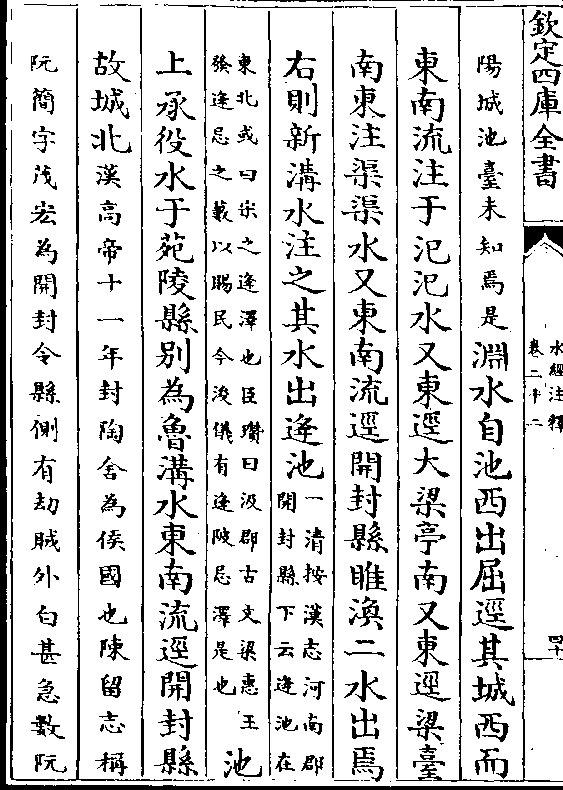 欽定四庫全書
水經注釋
卷二十二
四十
陽城池臺未知焉是淵水自池西出屈逕其城西而
東南流注于汜汜水又東逕大梁亭南又東逕梁臺
南東注渠渠水又東南流逕開封縣睢渙二水出焉
右則新溝水注之其水出逢池一清按漢志河南郡
開封縣下云逢池在
東北或曰宋之逢澤也臣瓚曰汲郡古文梁惠王
發逢忌之藪以賜民今浚儀有逢陂忌澤是也池
上承役水于苑陵縣别為魯溝水東南流逕開封縣
故城北漢高帝十一年封陶舍為侯國也陳留志稱
阮簡字茂宏為開封令縣側有刼賊外白甚急數阮